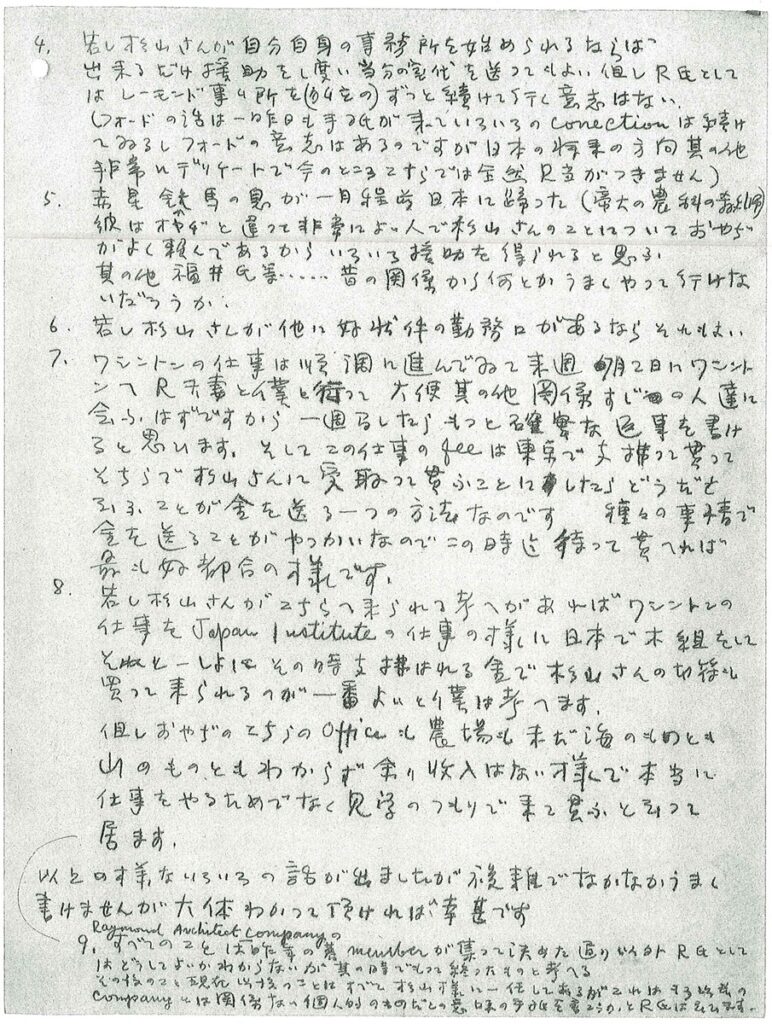 4. 若し杉山さんが自分自身の事務所を始められるならば
出来るだけ援助をし度い当分の家代を送ってもよい 但しR氏として
はレーモンド事ム所を(名を)ずっと続けて行く意志はない.
(フォードの話は一昨日も手紙が来ていろいろのconectionは続け
てゐるしフォードの意志はあるのですが日本の将来の方向其の他
非常にデリケートで今のところこちらでは全然見当がつきません)
5. 赤星鉄馬の息が一月程前日本に歸った (帝大の農科の
彼はオヤヂと違って非常によい人で杉山さんのことについておやぢ
がよく頼んであるからいろいろ援助を得られると思ふ
其の他福井氏等......昔の関係から何とかうまくやって行けな
いだろうか.
6. 若し杉山さんが他に好状件の勤務口があるならそれもよい
7. ワシントンの仕事は順調に進んでゐて来週 月2日にワシント
ンへR夫妻と僕と行って大使其の他関係すじの人達に
会ふはずですから一週間したらもっと確実な返事を書け
ると思います. そしてこの仕事のfeeは東京で支拂って貰って
そちらで杉山さんに受取って貰ふことにしたらどうだと
云ふことが金を送る一つの方法なのです 種々の事情で
金を送ることがやっかいなのでこの時迄待って貰へれば
最も好都合の様です.
8. 若し杉山さんがこちらへ来られる考へがあればワシントンの
仕事をJapan Instituteの仕事の様に日本で木組をして
それと一しょにその時支拂はれる金で杉山さんの切符も
買って来られるのが一番よいと僕は考へます.
但しおやぢのこちらのOfficeも農場も未だ海のものとも
山のものともわからず余り収入はない様で本当に
仕事をやるためでなく見学のつもりで来て貰ふと云って
居ます.
以上の様ないろいろの話が出ましたが複雑でなかなかうまく
書けませんが大体わかって頂ければ幸甚です
Raymond Architect Companyの
9. すべてのことは昨年の暮memberが集って決めた通り以外R氏として
はどうしてよいかわからないが其の時でもって終ったものと考へる
その後のこと現在以後のことはすべて杉山様に一任してあるがこれは
companyとは関係ない個人的のものだとの意味の手紙を書こうかとR氏は云ってます.